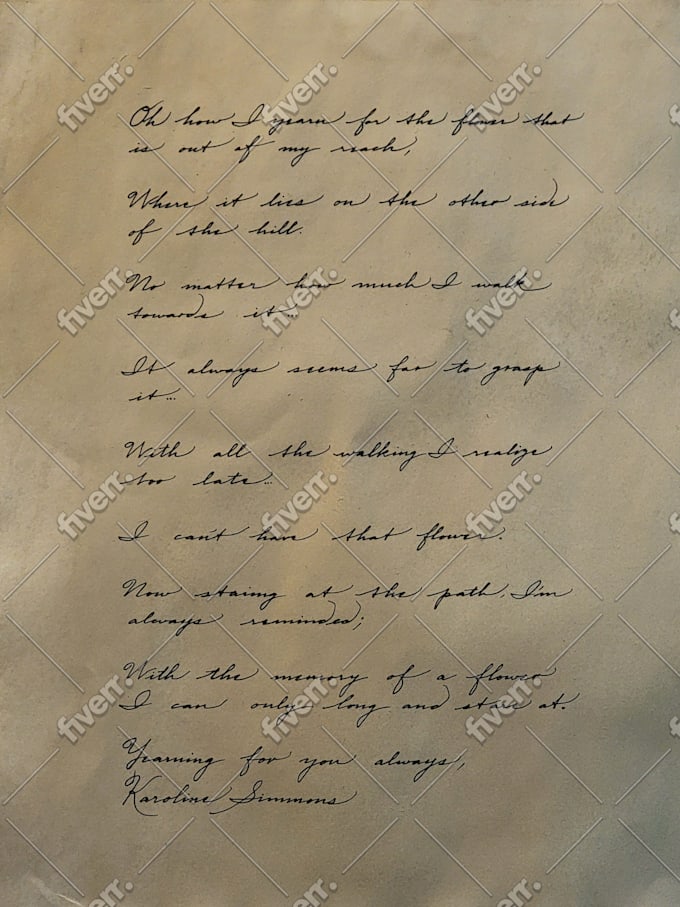 Oh how I yearn for the flower that
is out of my reach,
Where it lies on the other side
of the hill.
No matter how much I walk
towards it...
It always seems far to grasp
it...
With all the walking I realize
too late...
I can't have that flower.
Now staring at the path, I'm
always reminded;
With the memory of a flower
I can only long and stare at.
Yearning for you always,
Karoline Simmons
fiverr.